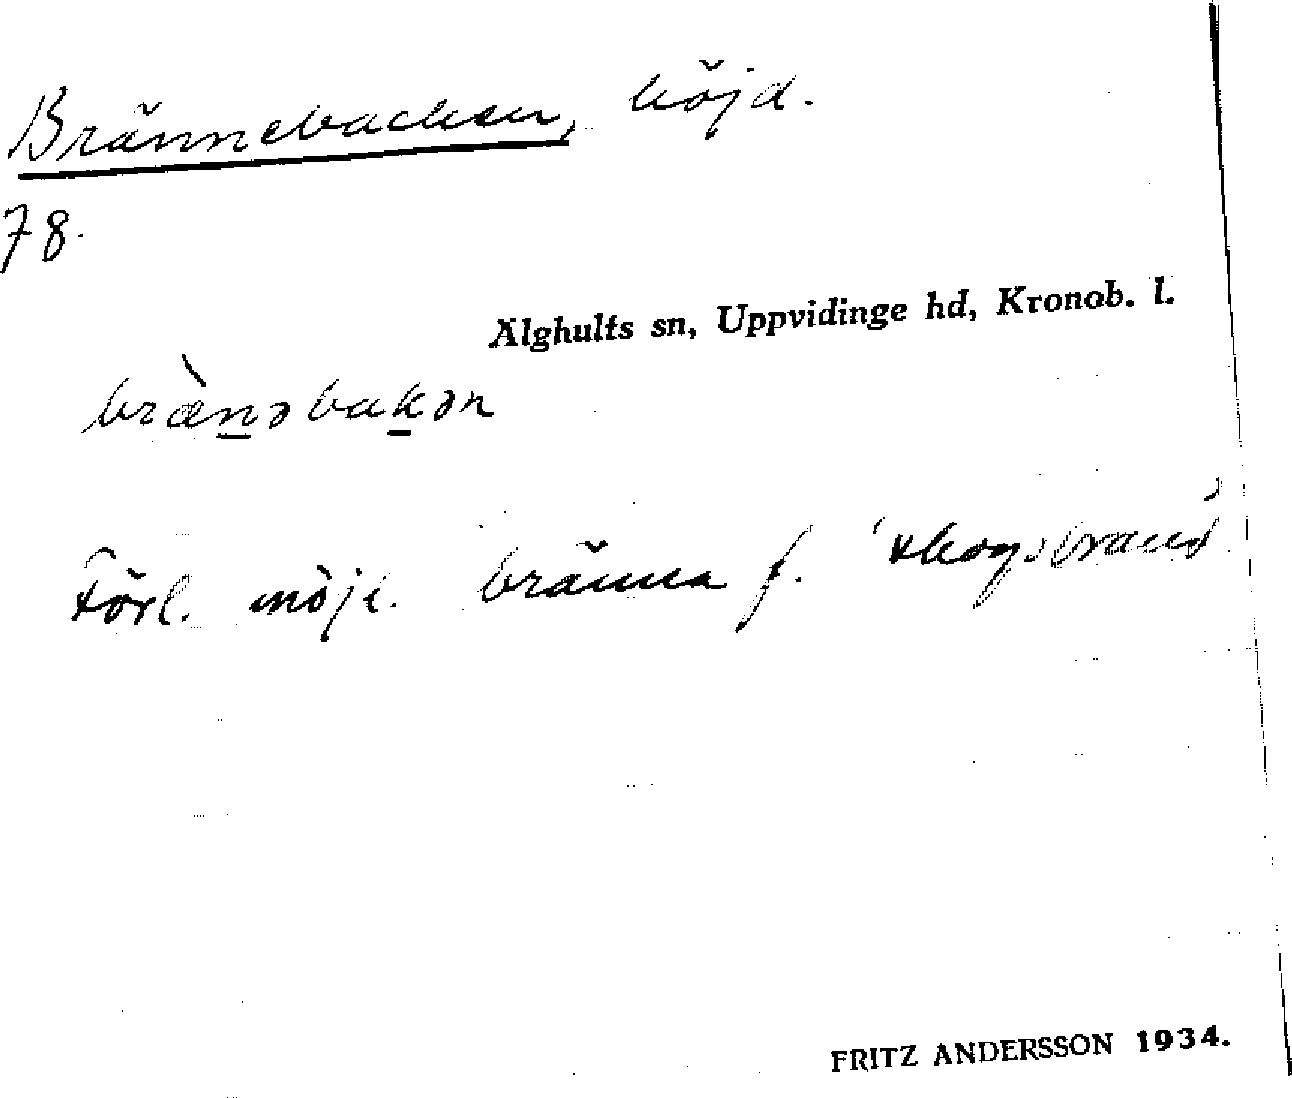 Brännebacken, höjd.
78.
Älghults sn, Uppvidinge hd, Kronob. l.
bræ̀nəbakən
Förl. möjl. bränna f. 'skogsbrand'.
FRITZ ANDERSSON 1934.